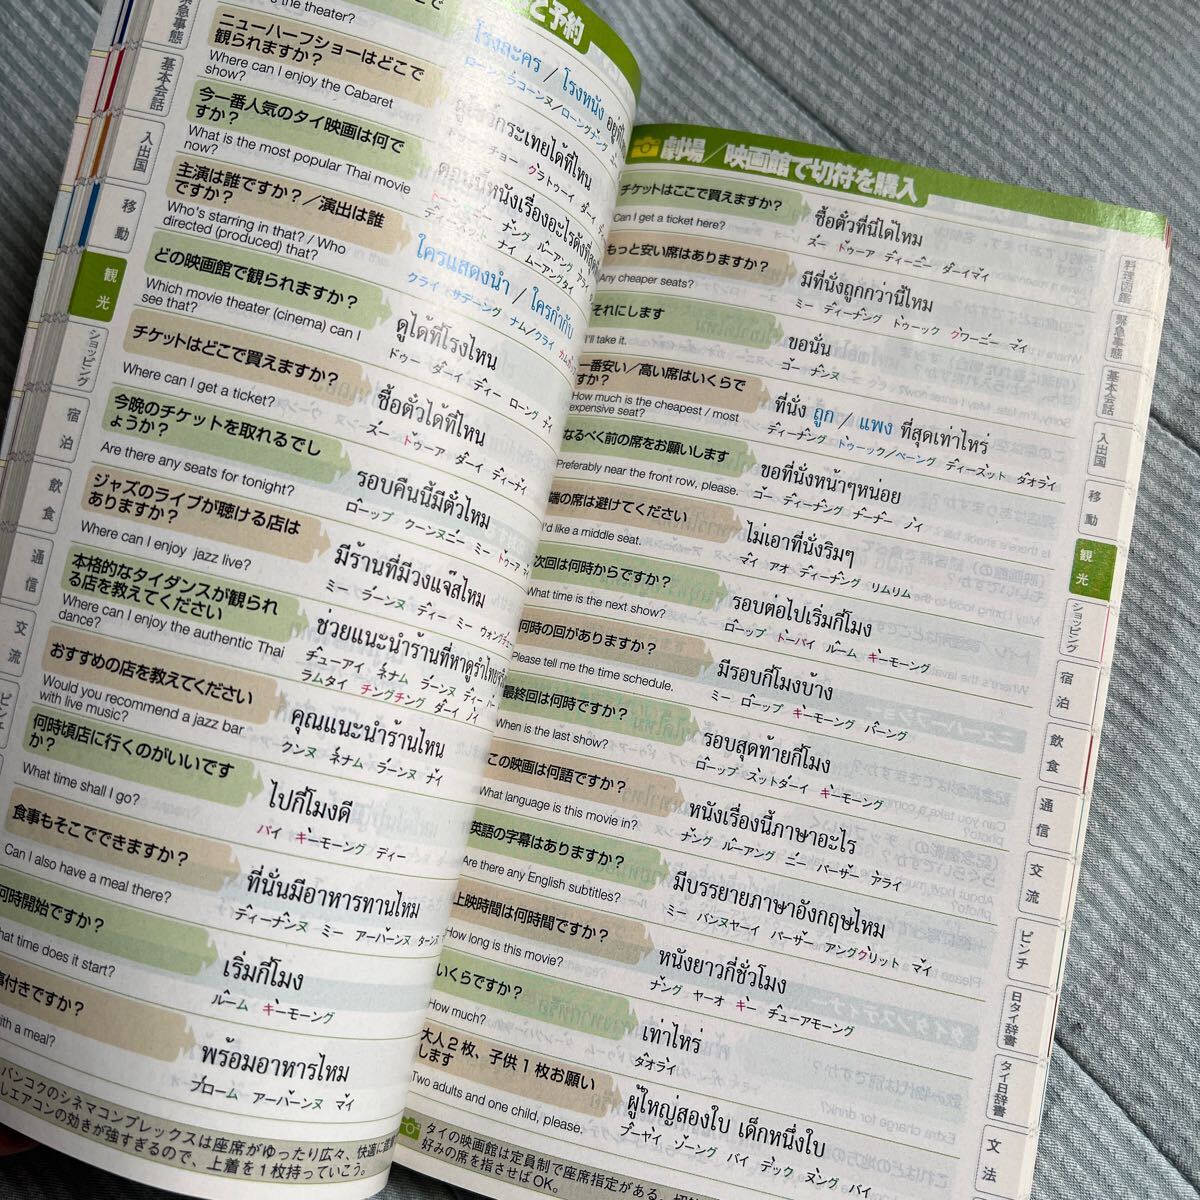 と予約
ng the theater?
ニューハーフショーはどこで
観られますか?
Where can I enjoy the Cabaret
show?
今一番人気のタイ映画は何で
すか?
What is the most popular Thai movie
now?
主演は誰ですか?/演出は誰
ですか?
Who's starring in that? / Who
directed (produced) that?
どの映画館で観られますか?
Which movie theater (cinema) can I
see that?
チケットはどこで買えますか?
Where can I get a ticket?
今晩のチケットを取れるでし
ょうか?
Are there any seats for tonight?
ジャズのライブが聴ける店は
ありますか?
Where can I enjoy jazz live?
本格的なタイダンスが観られ
る店を教えてください
Where can I enjoy the authentic Thai
dance?
おすすめの店を教えてください
Would you recommend a jazz bar
with live music?
何時頃店に行くのがいいです
か?
What time shall I go?
食事もそこでできますか?
Can I also have a meal there?
何時開始ですか?
hat time does it start?
付きですか?
th a meal?
โรงละคร / โรงหนัง อยู่ที่ไ
ローン ラコーンヌ/ローングナング
กระเทยได้ที่ไหน
ตอนนี้หนังเรื่องอะไรดังที่สุด
ใครแสดงนำ / ใครกำกับ
クライ サデーング ナム/クライ
ดูได้ที่โรงไหน
ドゥー ダーイ ディー ローング ナイ
ซื้อตั๋วได้ที่ไหน
ズー トゥーア ダーイ ディーナイ
รอบคืนนี้มีตั๋วไหม
ローップ クーンヌニー ミー トゥーア マイ
มีร้านที่มีวงแจ๊สไหม
ミー ラーンヌ ディー ミー
ช่วยแนะนำร้านที่หาดูรำไทย
ヂューアイ ネナム ラーンヌ ディー
ラムタイ チングチング ダーイ ノイ
คุณแนะนำร้านไหน
クンヌ ネナム ラーンヌ ナイ
ไปกี่โมงดี
パイ キーモーング ディー
ที่นั่นมีอาหารทานไหม
ディーナンヌ ミー アーハーンヌ ターンヌ
เริ่มกี่โมง
ルーム キーモーング
พร้อมอาหารไหม
プローム アーハーンヌ マイ
バンコクのシネマコンプレックスは座席がゆったり広々、快適に
しエアコンの効きが強すぎるので、上着を1枚持っていこう。
緊急事態
基本会話
入出国
移動
観光
ショッピング
宿泊
飲食
通信
交流
ピンチ
劇場/映画館で切符を購入
チケットはここで買えますか?
Can I get a ticket here?
ซื้อตั๋วที่นี่ได้ไหม
ズー トゥーア ディーニー ダーイマイ
もっと安い席はありますか?
Any cheaper seats?
มีที่นั่งถูกกว่านี้ไหม
ミー ディーナング トゥーック クワーニー マイ
それにします
I'll take it.
ขอนั่น
ゴー ナンヌ
一番安い/高い席はいくらで
すか?
How much is the cheapest / most
expensive seat?
ที่นั่ง ถูก / แพง ที่สุดเท่าไหร่
ディーナング トゥーック/ペーング ディースット ダオライ
なるべく前の席をお願いします
Preferably near the front row, please.
ขอที่นั่งหน้าๆหน่อย
ゴー ディーナング ナーナー ノイ
端の席は避けてください
I'd like a middle seat.
ไม่เอาที่นั่งริมๆ
マイ アオ ディーナング リムリム
次回は何時からですか?
What time is the next show?
รอบต่อไปเริ่มกี่โมง
ローップ トーパイ ルーム キーモーング
何時の回がありますか?
Please tell me the time schedule.
มีรอบกี่โมงบ้าง
ミー ローップ キーモーング バーング
最終回は何時ですか?
When is the last show?
รอบสุดท้ายกี่โมง
ローップ スットダーイ キーモーング
この映画は何語ですか?
What language is this movie in?
หนังเรื่องนี้ภาษาอะไร
ナング ルーアング ニー パーザー アライ
英語の字幕はありますか?
Are there any English subtitles?
มีบรรยายภาษาอังกฤษไหม
ミー バンヌヤーイ パーザー アングクリット マイ
上映時間は何時間ですか?
How long is this movie?
หนังยาวกี่ชั่วโมง
ナング ヤーオ キー ヂューアモーング
いくらですか?
How much?
เท่าไหร่
ダオライ
大人2枚、子供1枚お願い
します
Two adults and one child, please.
ผู้ใหญ่สองใบ เด็กหนึ่งใบ
プーヤイ ゾーング バイ デック ヌング バイ
タイの映画館は定員制で座席指定がある。
好みの席を指させばOK。
料理図鑑
緊急事態
基本会話
入出国
移動
観光
ショッピング
宿泊
飲食
通信
交流
ピンチ
日タイ辞書
タイ日辞書
文法